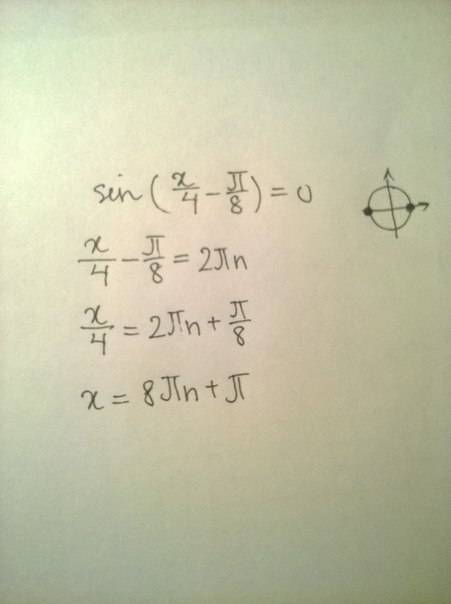 sin(x/4 − π/8) = 0
x/4 − π/8 = 2πn
x/4 = 2πn + π/8
x = 8πn + π